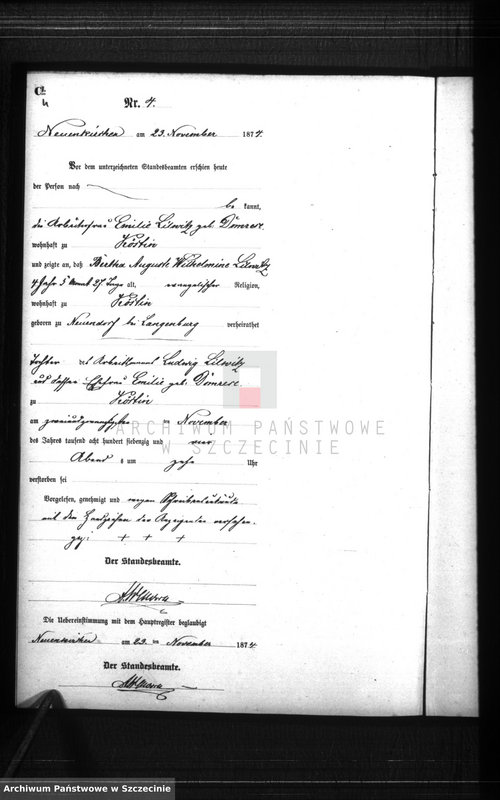 C.
Nr. 4.
Neuenkirchen am 23. November 1874.
Vor dem unterzeichneten Standesbeamten erschien heute
der Person nach
be kannt,
die Arbeiterfrau Emilie Litwitz geb. Dömrese
wohnhaft zu Köstin
und zeigte an, daß Bertha Auguste Wilhelmine Litwitz
4 Jahr 5 Monat 27 Tage alt, evangelischer Religion,
wohnhaft zu Köstin
geboren zu Neuendorf bei Langenburg verheirathet
Tochter des Arbeitsmanns Ludwig Litwitz
und dessen Ehefrau Emilie geb. Dömrese.
zu Köstin
am zweiundzwanzigsten November
des Jahres tausend acht hundert siebenzig und vier
Abend s um zehn Uhr
verstorben sei
Vorgelesen, genehmigt und wegen Schreibensunkunde
mit den Handzeichen der Anzeigenden versehen.
gez: + + +
Der Standesbeamte.
Die Uebereinstimmung mit dem Hauptregister beglaubigt
Neuenkirchen am 23. ten November 1874.
Der Standesbeamte.
ARCHIWUM PAŃSTWOWE
W SZCZECINIE
Archiwum Państwowe w Szczecinie